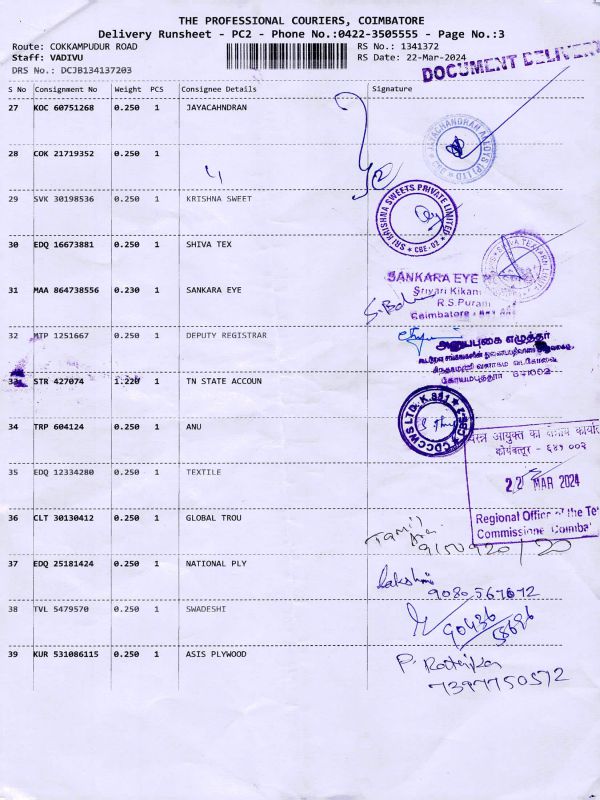 THE PROFESSIONAL COURIERS, COIMBATORE
Delivery Runsheet - PC2 - Phone No.:0422-3505555 - Page No.:3
Route: COKKAMPUDUR ROAD
RS No.: 1341372
Staff: VADIVU
RS Date: 22-Mar-2024
DRS No.: DCJB134137203
DOCUMENT DELIVERY
S No Consignment No Weight PCS Consignee Details Signature
27 KOC 60751268 0.250 1 JAYACAHNDRAN
28 COK 21719352 0.250 1
29 SVK 30198536 0.250 1 KRISHNA SWEET
SRI KRISHNA SWEETS PRIVATE LIMITED
CBE-02
30 EDQ 16673881 0.250 1 SHIVA TEX
31 MAA 864738556 0.230 1 SANKARA EYE
SANKARA EYE
R.S.Puram
Coimbatore
32 MTP 1251667 0.250 1 DEPUTY REGISTRAR
33 STR 427074 1.220 1 TN STATE ACCOUN
கோயமுத்தூர் 641002
34 TRP 604124 0.250 1 ANU
CDCCWS LTD. K.881
कोयंबत्तूर - ६४१ ००२
35 EDQ 12334280 0.250 1 TEXTILE
22 MAR 2024
36 CLT 30130412 0.250 1 GLOBAL TROU
Regional Office of the Te
Commissione Coimba
37 EDQ 25181424 0.250 1 NATIONAL PLY
9080567672
38 TVL 5479570 0.250 1 SWADESHI
90436
39 KUR 531086115 0.250 1 ASIS PLYWOOD
7397750572